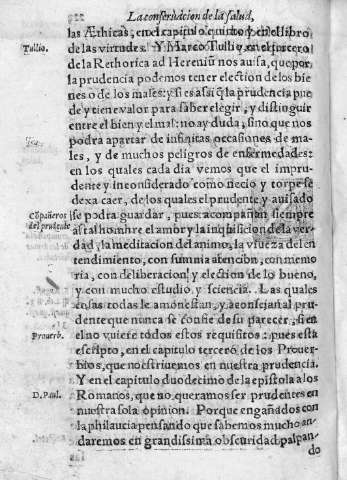 La conseruacion de la salud,
las Æthicas, en el capitulo quinto y en el libro
Tullio.
de las virtudes. Y Marco Tullio en el tercero
de la Rethorica ad Herenium nos auisa, que por
la prudencia podemos tener election de los bie
nes o de los males: y si es assi q̃ la prudencia pue
de y tiene valor para saber elegir, y distinguir
entre el bien y el mal: no ay duda, sino que nos
podra apartar de infinitas occasiones de ma-
les, y de muchos peligros de enfermedades:
en los quales cada dia vemos que el impru-
dente y inconsiderado como necio y torpe se
dexa caer, de los quales el prudente, y auisado
Cõpañeros
del prudente
se podra guardar, pues acompañan siempre
a este tal hombre el amor y la inquisicion de la ver-
dad, la meditacion del animo, la viueza del en
tendimiento, con summa atencion, con memo
ria, con deliberacion, y election de lo bueno,
y con mucho estudio y sciencia. Las quales
cosas todas le amonestan, y aconsejan al pru-
dente que nunca se confie de su parecer, si en
Prouerb.
el no vuiere todos estos requisitos: pues esta
escripto, en el capitulo tercero de los Prouer-
bios, que no estriuemos en nuestra prudencia.
Y en el capitulo duodecimo de la epistola a los
D. Paul.
Romanos, que no queramos ser prudentes en
nuestra sola opinion. Porque engañados con
la philaucia pensando que sabemos mucho an-
daremos en grandissima obscuridad palpan-
do